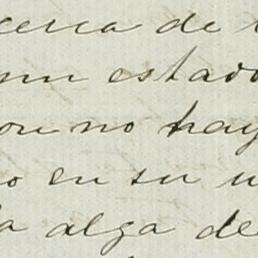 cerca de
un estado
on no hay
o en su u
la alga de